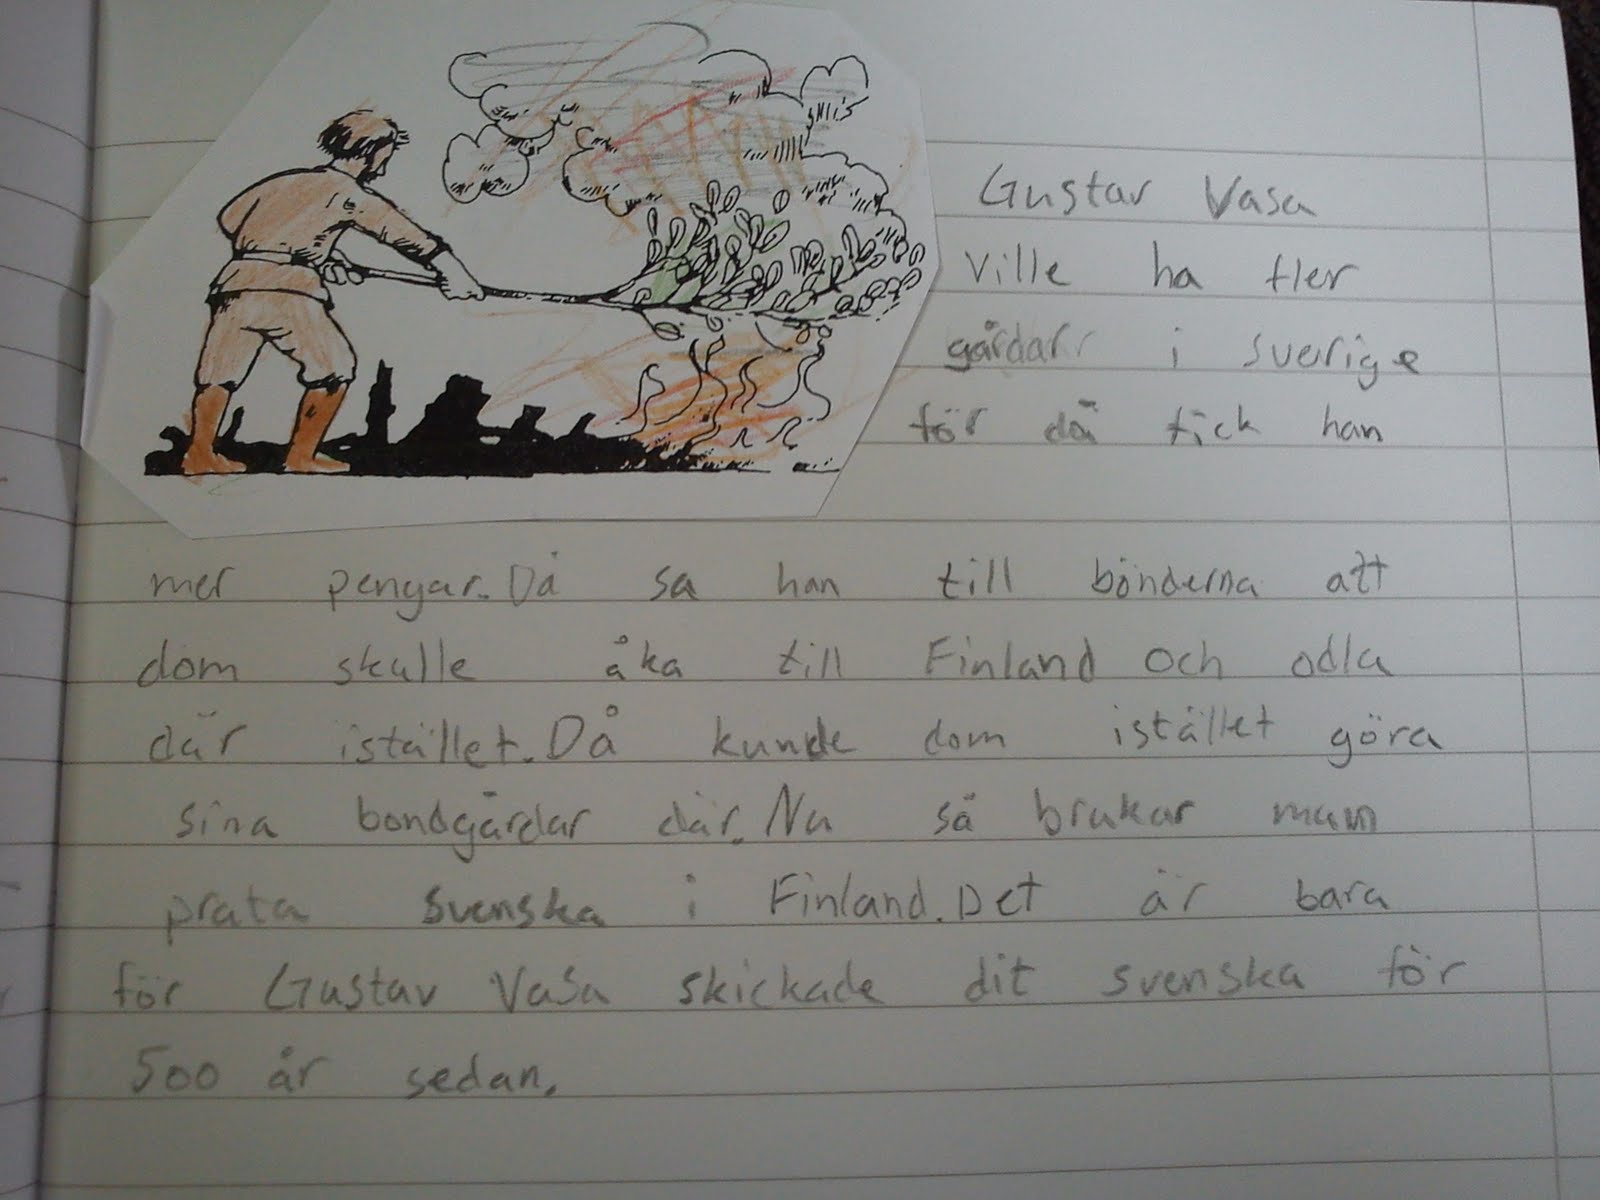 Gustav Vasa
ville ha fler
gårdar i sverige
för då fick han
mer pengar. Då sa han till bönderna att
dom skulle åka till Finland och odla
där istället. Då kunde dom istället göra
sina bondgårdar där. Nu så brukar man
prata svenska i Finland. Det är bara
för Gustav Vasa skickade dit svenska för
500 år sedan.